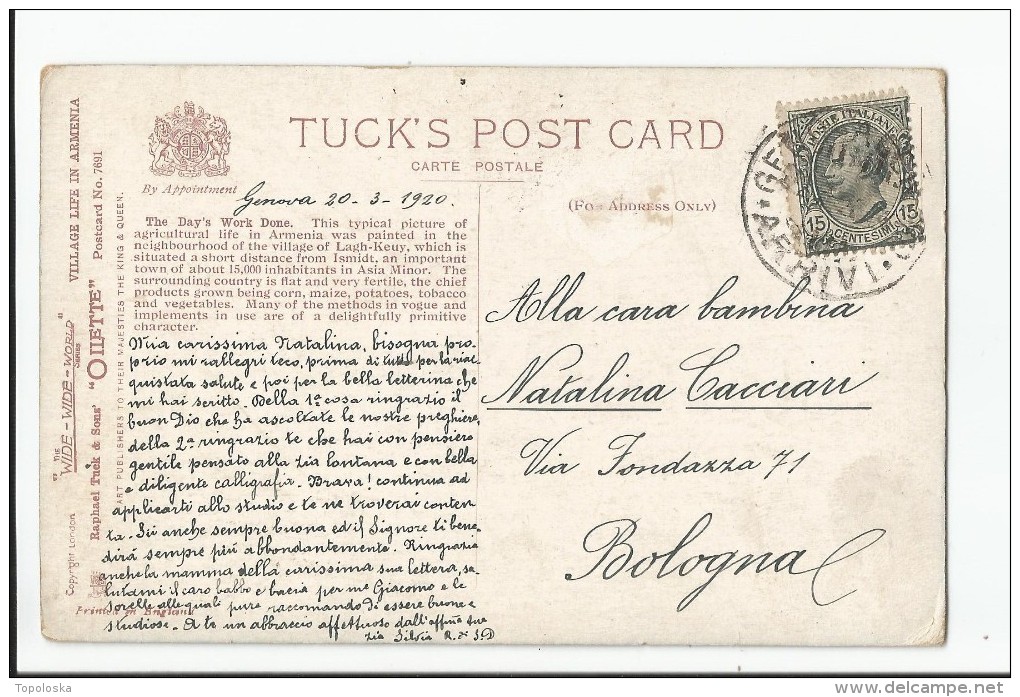 TUCK'S POST CARD
CARTE POSTALE
By Appointment
(FOR ADDRESS ONLY)
Genova 20-3-1920.
The Day's Work Done. This typical picture of
agricultural life in Armenia was painted in the
neighbourhood of the village of Lagh-Keuy, which is
situated a short distance from Ismidt, an important
town of about 15,000 inhabitants in Asia Minor. The
surrounding country is flat and very fertile, the chief
products grown being corn, maize, potatoes, tobacco
and vegetables. Many of the methods in vogue and
implements in use are of a delightfully primitive
character.
Mia carissima Natalina, bisogna pro-
prio mi rallegri teco, prima di tutto per la riac-
quistata salute e poi per la bella letterina che
mi hai scritto. Della 1ª cosa ringrazio il
buon Dio che ha ascoltate le nostre preghiere,
della 2ª ringrazio te che hai con pensiero
gentile pensato alla zia lontana e con bella
e diligente calligrafia. Brava! continua ad
applicarti allo studio e te ne troverai conten-
ta. Sii anche sempre buona ed il Signore ti bene-
dirà sempre più abbondantemente. Ringrazia
anche la mamma della carissima sua lettera, sa-
lutami il caro babbo e bacia per me Giacomo e le
sorelle alle quali pure raccomando di essere buone e
studiose. A te un abbraccio affettuoso dall'affma tua
zia Silvia
Alla cara bambina
Natalina Cacciari
Via Fondazza 71
Bologna
POSTE ITALIANE
15 CENTESIMI 15
"THE WIDE-WIDE-WORLD" SERIES
VILLAGE LIFE IN ARMENIA
Raphael Tuck & Sons' "OILETTE" Postcard No. 7691
ART PUBLISHERS TO THEIR MAJESTIES THE KING & QUEEN.
Copyright London
Printed in England
Topoloska
www.delcampe.net